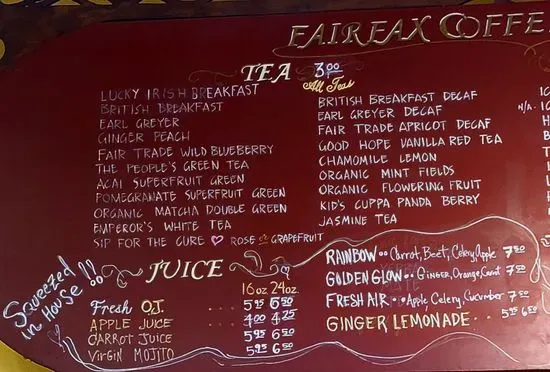 FAIRFAX COFFE
TEA 3.00
All Teas
LUCKY IRISH BREAKFAST
BRITISH BREAKFAST
EARL GREYER
GINGER PEACH
FAIR TRADE WILD BLUEBERRY
THE PEOPLE'S GREEN TEA
ACAI SUPERFRUIT GREEN
POMEGRANATE SUPERFRUIT GREEN
ORGANIC MATCHA DOUBLE GREEN
EMPEROR'S WHITE TEA
SIP FOR THE CURE ♡ ROSE OR GRAPEFRUIT
BRITISH BREAKFAST DECAF
EARL GREYER DECAF
FAIR TRADE APRICOT DECAF
GOOD HOPE VANILLA RED TEA
CHAMOMILE LEMON
ORGANIC MINT FIELDS
ORGANIC FLOWERING FRUIT
KID'S CUPPA PANDA BERRY
JASMINE TEA
N/A
Squeezed
in House!!
JUICE
16oz 24oz
Fresh O.J. .... 5.95 6.50
APPLE JUICE 4.00 4.25
CARROT JUICE 5.95 6.50
VIRGIN MOJITO 5.95 6.50
RAINBOW.. Carrot, Beet, Celery, Apple 7.50
GOLDEN GLOW.. GINGER, Orange, Carrot 7.50
FRESH AIR... Apple, Celery, Cucumber 7.50
GINGER LEMONADE.. 5.95 6.50